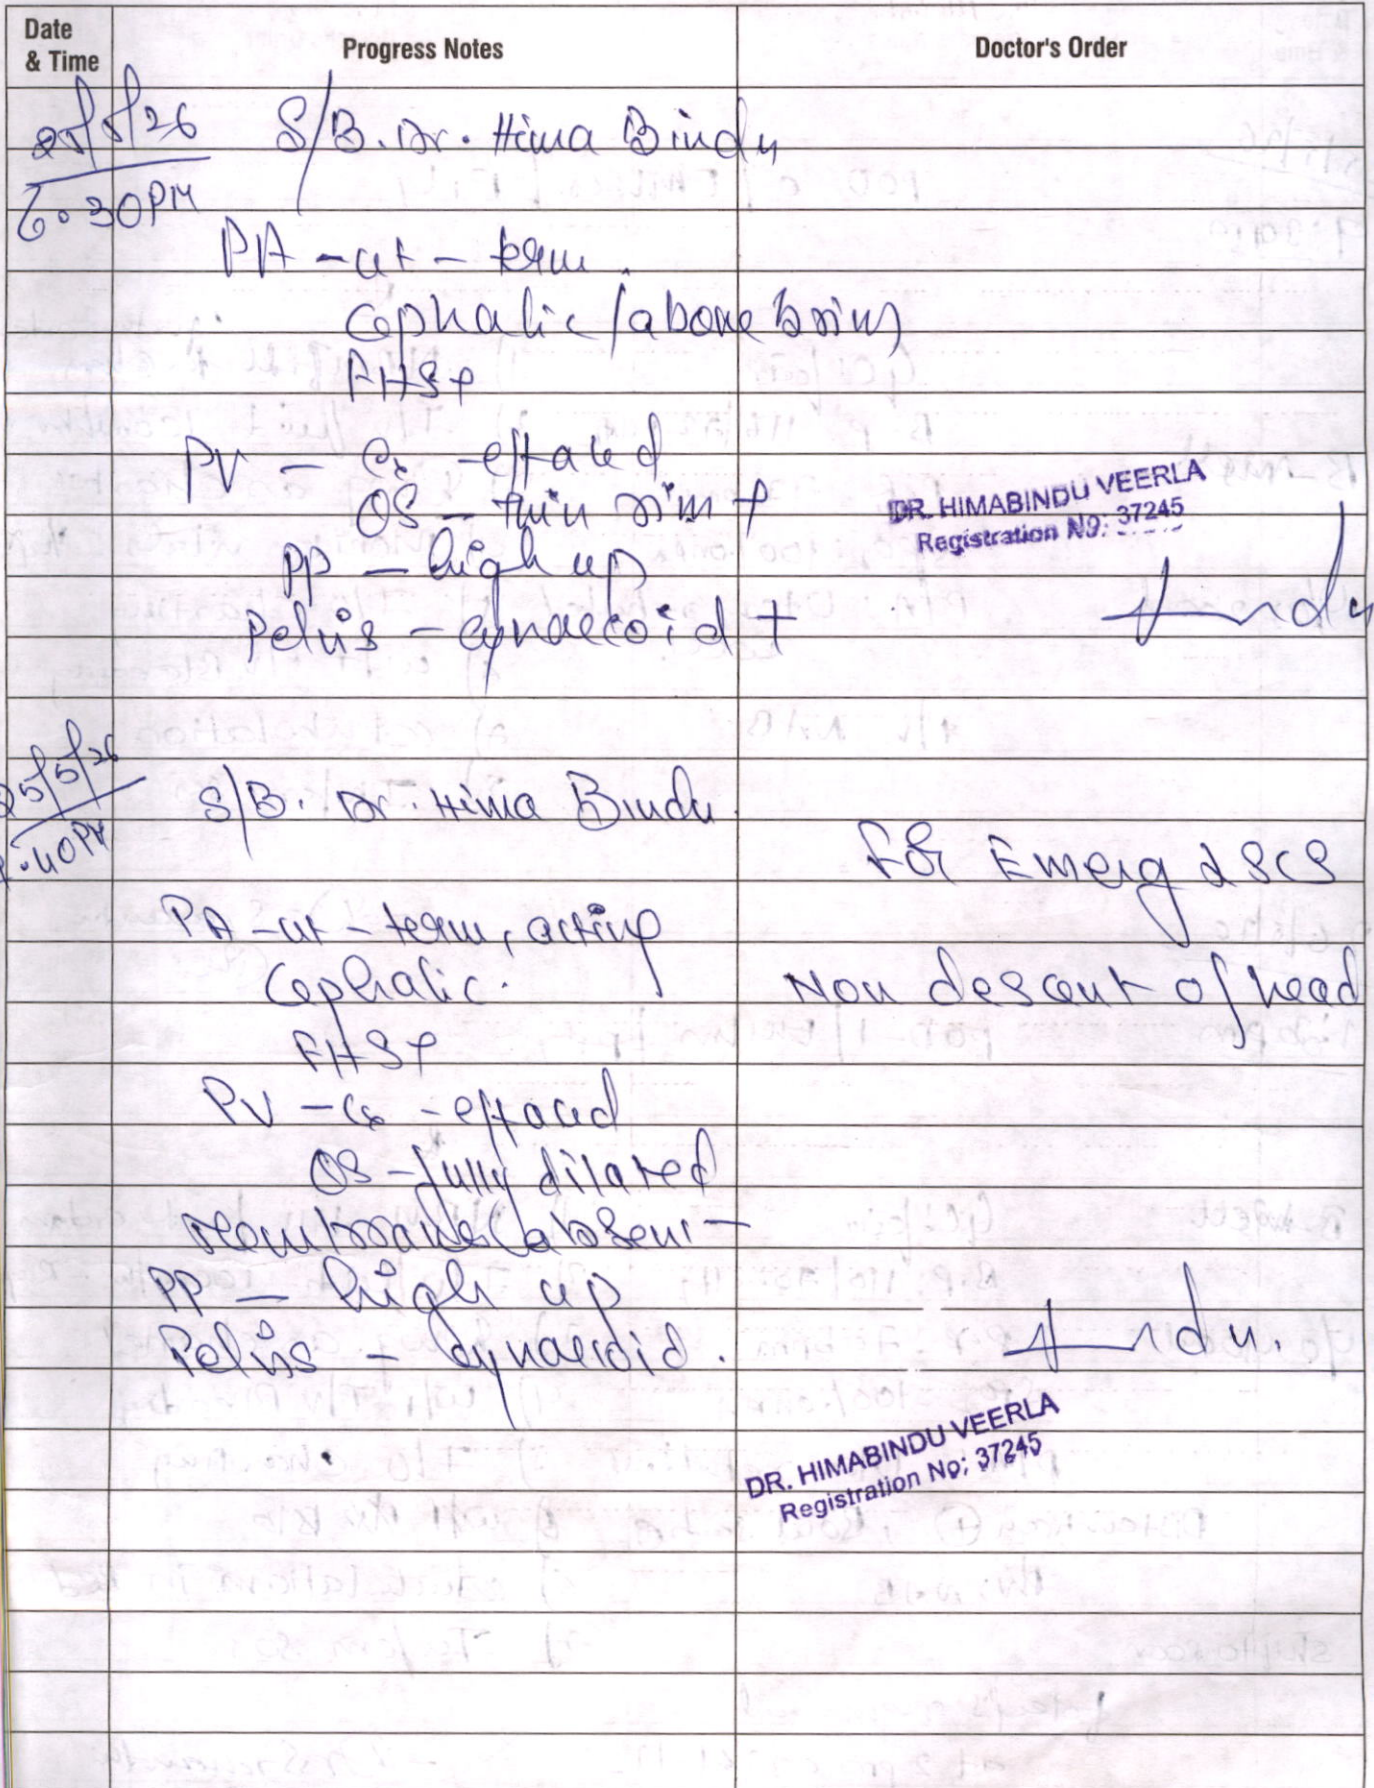 Date & Time
Progress Notes
Doctor's Order
25/5/26
6.30PM
S/B. Dr. Hima Bindu
PA - ut - term.
Cephalic/above brim
FHS+
PV - Cx - effaced
OS - thin rim +
PP - high up
Pelvis - gynaecoid +
DR. HIMABINDU VEERLA
Registration NO: 37245
25/5/26
.40PM
S/B. Dr. Hima Bindu.
For Emerg LSCS
PA - ut - term, acting
Cephalic.
Non descent of head
FHS+
PV - Cx - effaced
OS - fully dilated
membranes absent
PP - high up
Pelvis - gynaecoid.
DR. HIMABINDU VEERLA
Registration No: 37245